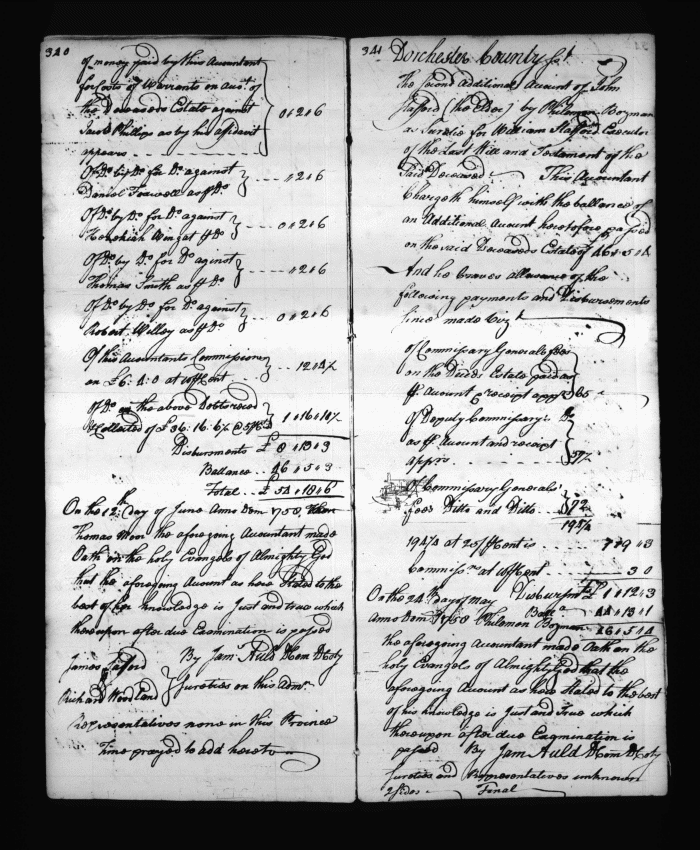 340
of money paid by this Accountant
for Costs of Warrants on Acct. of
the Deceaseds Estate against
Jacob Phillips as by his affidavit
appears 0 " 2 " 6
Of Do. by Do. for Do. against
Daniel Foxwell as ℔ Do. " 2 " 6
Of Do. by Do. for Do. against
Hezekiah Wingat ℔ Do. 0 " 2 " 6
Of Do. by Do. for Do. against
Thomas Smith as ℔ Do. " 2 " 6
Of Do. by Do. for Do. against
Robert Willey as ℔ Do. 0 " 2 " 6
Of this Accountants Commissions
on £6: 4: 0 at ℔ Cent
Of Do. on the above Debts reced
& Collected of £36: 16:
Disbursments £ 8 " 13 " 3
Ballance 46 " 5 " 3
Total £ 54 " 18 " 6
On the 12th. Day of June Anno Dom 1750 then
Thomas Moor the aforegoing Accountant made
Oath on the holy Evangels of Almighty God
that the aforegoing Account as here Stated to the
best of her knowledge is Just and true which
thereupon after due Examination is passed
By Jam: Auld D Com D Coty
James Safford
Richard Woodland } Sureties on this Admr.
Representatives none in this Province
Time prayed to add hereto
341
Dorchester County Sct.
The Second Additional Account of John
Stafford (the Elder) by Philemon Bozman
as Suretie for William Stafford Executor
of the Last Will and Testament of the
Said Deceased This Accountant
Chargeth himself with the ballance of
an Additional Account heretofore passed
on the said Deceaseds Estate of 46 " 5 " 4
And he Craves allowance of the
following payments and Disbursements
since made Vizt.
of Commissary Generals fees
on the Deceds Estate paid as
℔ Account & receipt appr. 65
Of Deputy Commissarys Do.
as ℔ Account and receipt
apprs. 37
Of Commissary Generals
fees Ditto and Ditto 92
194
194 at 25/ ℔ Cent is " 9 " 3
Commissns at ℔ Cent 3 0
Disbursmts £ 1 " 12 " 3
On the 24th. Day of May Balla. 44 " 13 " 1
Anno Dom 1750 Philemon Bozman 46 " 5 " 4
the aforegoing Accountant made Oath on the
holy Evangels of Almighty God that the
aforegoing Account as here Stated to the best
of his knowledge is Just and True which
thereupon after due Examination is
passed By Jam Auld D Com D Coty
Sureties and Representatives unknown
2 Sides Final